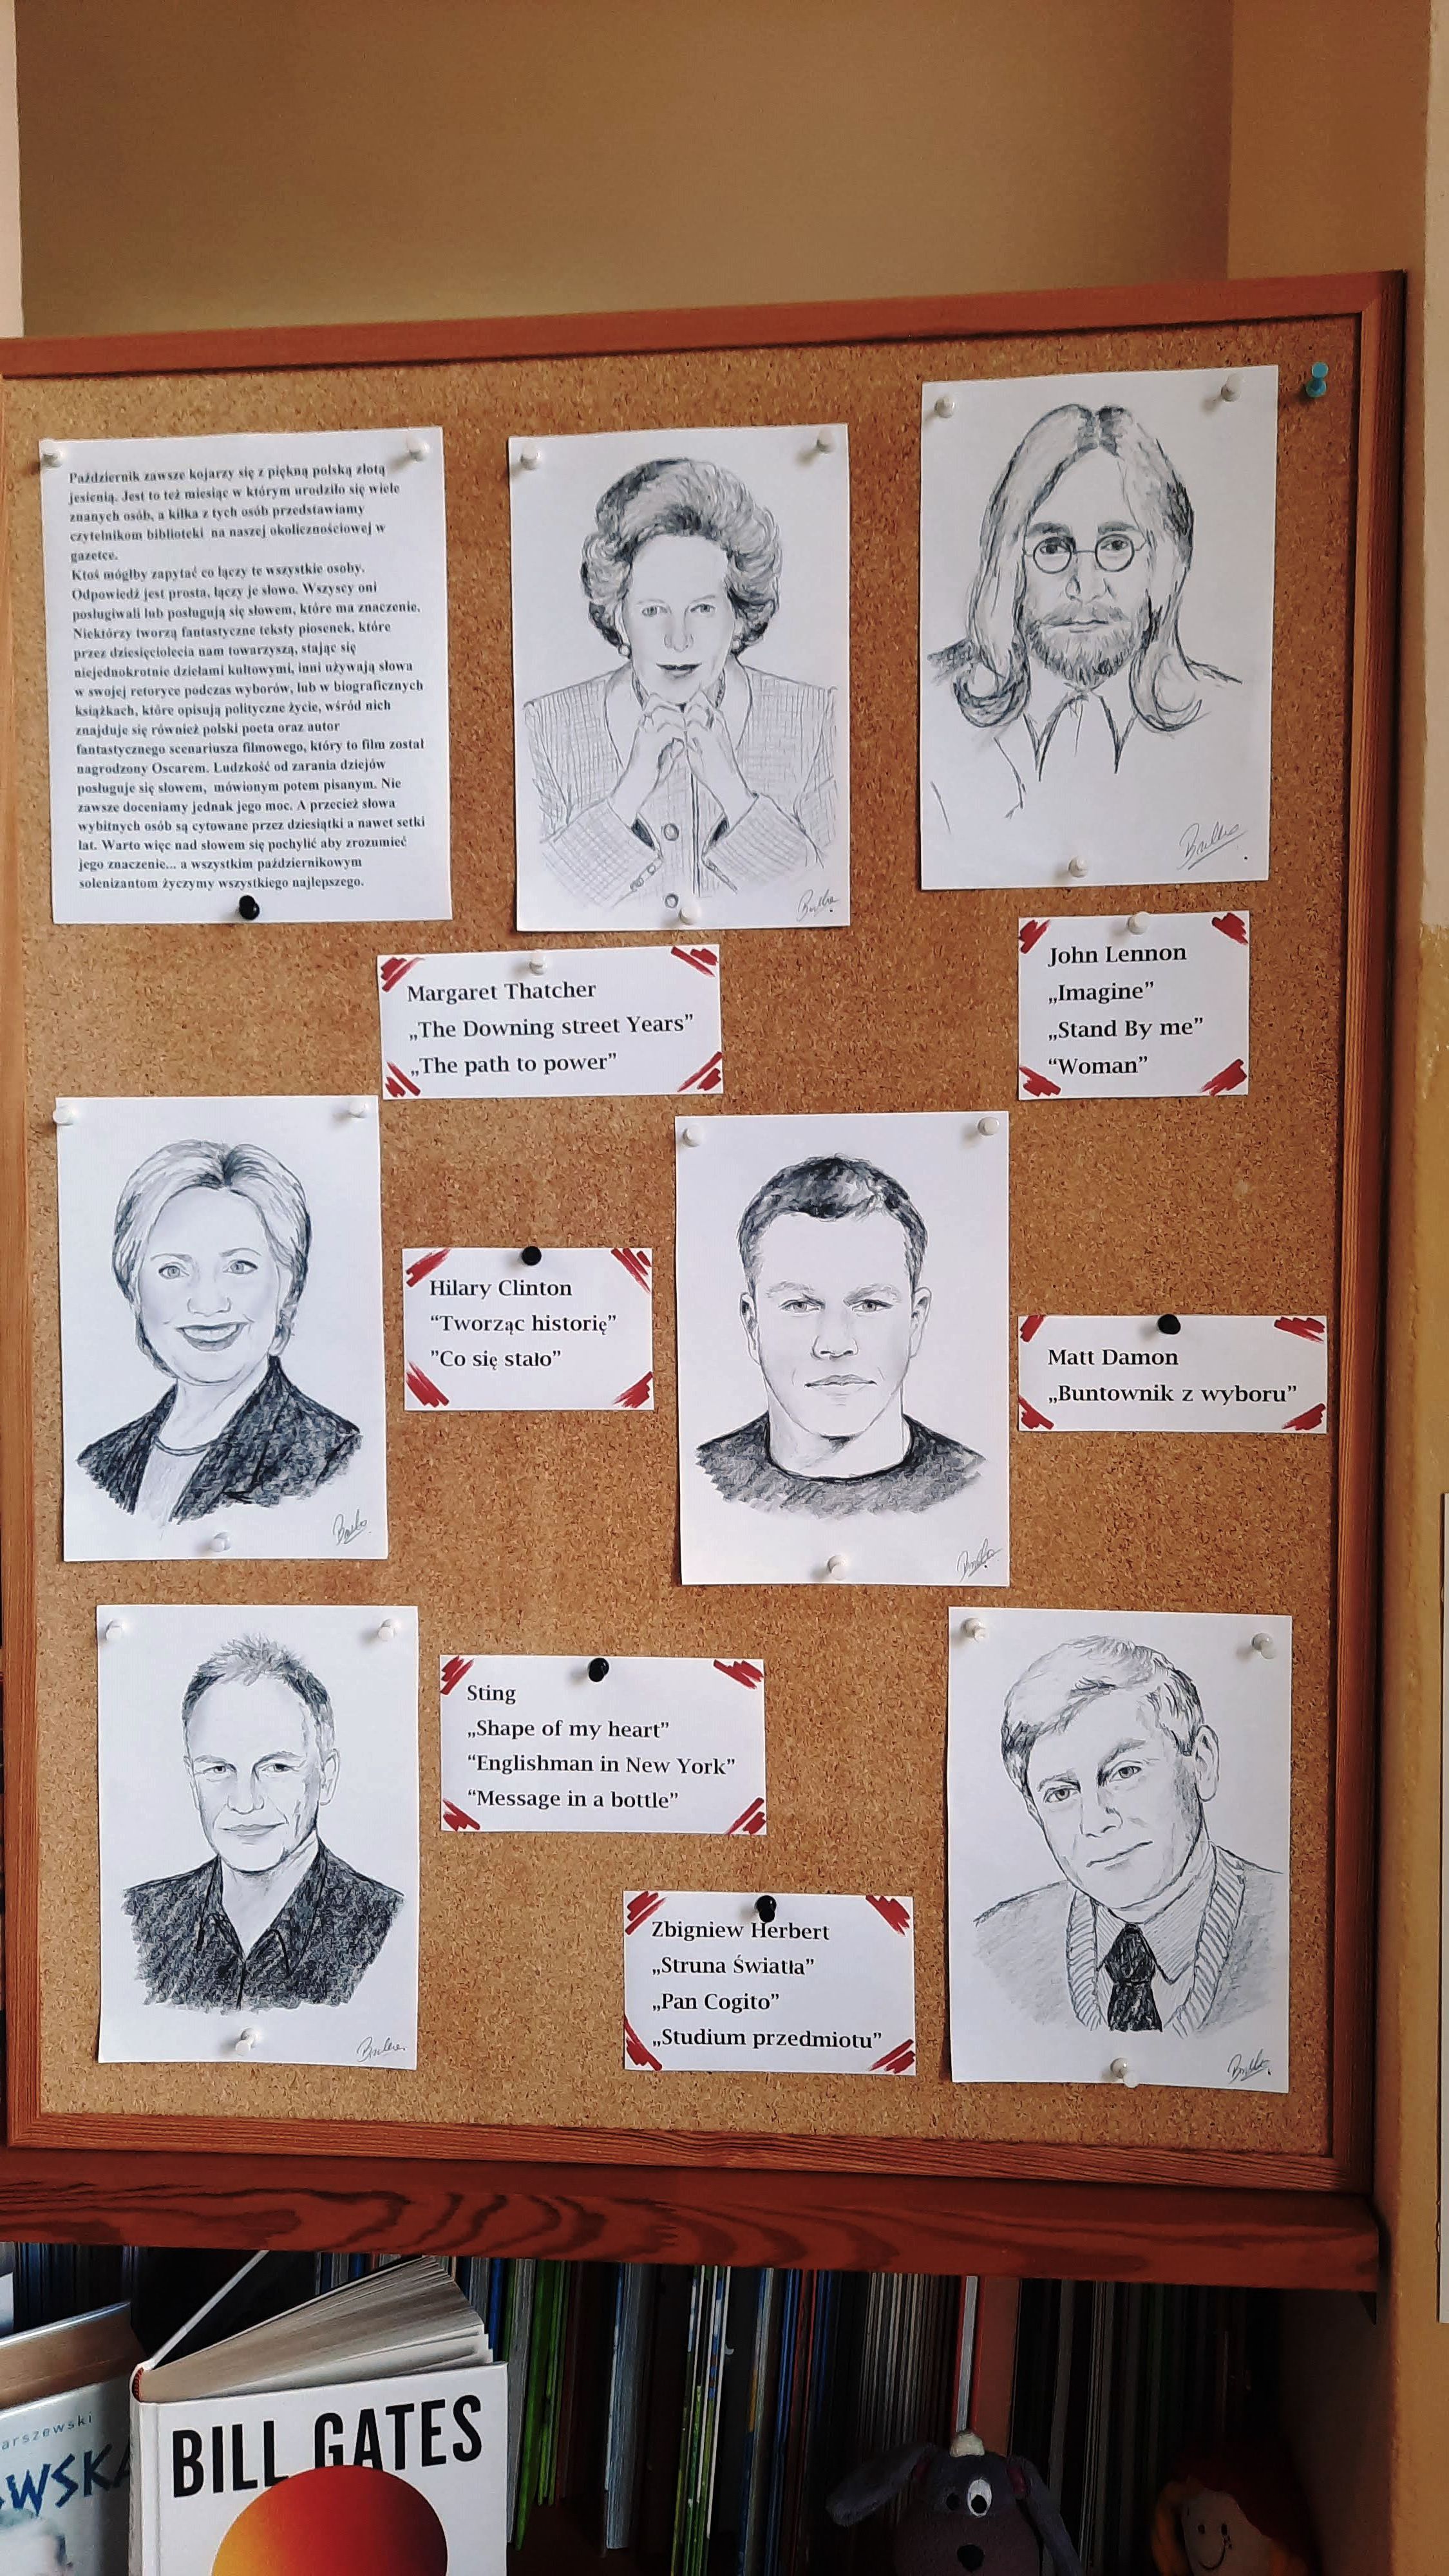 Październik zawsze kojarzy się z piękną polską złotą
jesienią. Jest to też miesiąc w którym urodziło się wiele
znanych osób, a kilka z tych osób przedstawiamy
czytelnikom biblioteki na naszej okolicznościowej w
gazetce.
Ktoś mógłby zapytać co łączy te wszystkie osoby.
Odpowiedź jest prosta, łączy je słowo. Wszyscy oni
posługiwali lub posługują się słowem, które ma znaczenie.
Niektórzy tworzą fantastyczne teksty piosenek, które
przez dziesięciolecia nam towarzyszą, stając się
niejednokrotnie dziełami kultowymi, inni używają słowa
w swojej retoryce podczas wyborów, lub w biograficznych
książkach, które opisują polityczne życie, wśród nich
znajduje się również polski poeta oraz autor
fantastycznego scenariusza filmowego, który to film został
nagrodzony Oscarem. Ludzkość od zarania dziejów
posługuje się słowem, mówionym potem pisanym. Nie
zawsze doceniamy jednak jego moc. A przecież słowa
wybitnych osób są cytowane przez dziesiątki a nawet setki
lat. Warto więc nad słowem się pochylić aby zrozumieć
jego znaczenie... a wszystkim październikowym
solenizantom życzymy wszystkiego najlepszego.
Margaret Thatcher
„The Downing street Years”
„The path to power”
John Lennon
„Imagine”
„Stand By me”
“Woman”
Hilary Clinton
“Tworząc historię”
”Co się stało”
Matt Damon
„Buntownik z wyboru”
Sting
„Shape of my heart”
“Englishman in New York”
“Message in a bottle”
Zbigniew Herbert
„Struna Światła”
„Pan Cogito”
„Studium przedmiotu”
BILL GATES